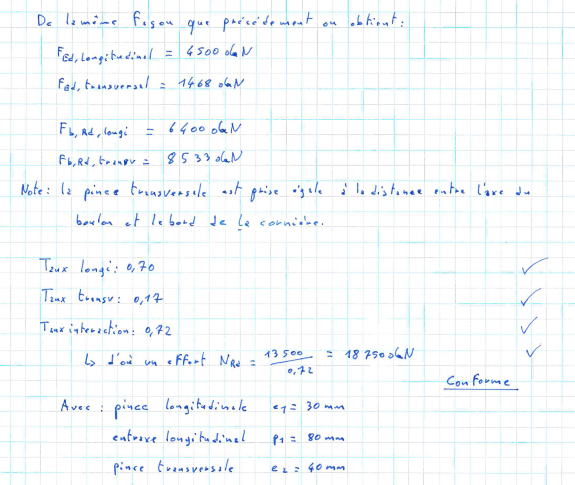 De la même façon que précédement on obtient :
FEd, longitudinal = 4500 daN
FEd, transversal = 1468 daN
Fb, Rd, longi = 6400 daN
Fb, Rd, transv = 8533 daN
Note : la pince transversale est prise égale à la distance entre l'axe du
boulon et le bord de la cornière.
Taux longi : 0,70 ✓
Taux transv : 0,17 ✓
Taux interaction : 0,72 ✓
↳ d'où un effort NRd = 13500 / 0,72 = 18750 daN ✓
Conforme
Avec : pince longitudinale e1 = 30 mm
entraxe longitudinal p1 = 80 mm
pince transversale e2 = 40 mm